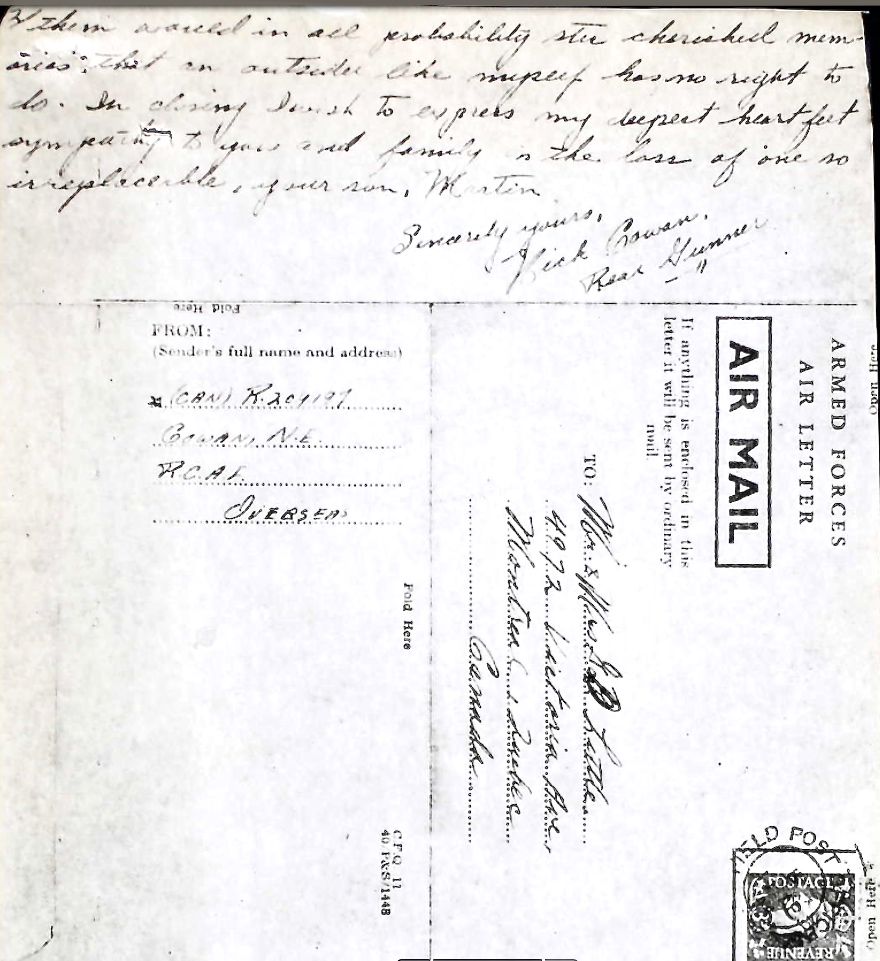 3/ them would in all probability stir cherished mem-
ories; that an outsider like myself has no right to
do. In closing I wish to express my deepest heartfelt
sympathy to you and family in the loss of one so
irreplacerble, your son, Martin
Sincerely yours,
Nick Cowan.
Rear Gunner
"
Fold Here
FROM:
(Sender's full name and address)
(CAN) R.204197
COWAN, N.E.
R.C.A.F.
OVERSEAS
Fold Here
C.F.Q. 11
40/P&S/1448
ARMED FORCES
AIR LETTER
AIR MAIL
If anything is enclosed in this
letter it will be sent by ordinary
mail.
TO: Mr. & Mrs. J.B. Little
4972 Victoria Ave
Montreal, Quebec
Canada
Open Here
Open Here
FIELD POST
POSTAGE
REVENUE